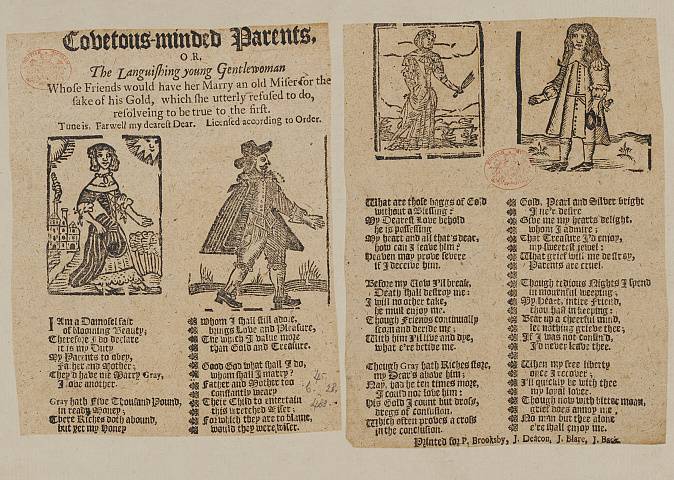 Covetous-minded Parents,
OR,
The Languishing young Gentlewoman
Whose Friends would have her Marry an old Miser for the
sake of his Gold, which she utterly refused to do,
resolveing to be true to the first.
Tune is, Farwell my dearest Dear. Licensed according to Order.
I Am a Damosel fair
of blooming Beauty;
Therefore I do declare
it is my Duty
My Parents to obey,
Father and Mother;
They'd have me Marry Gray,
I love another.
Gray hath Five Thousand Pound,
in ready Money;
There Riches doth abound,
but yet my Honey
whom I shall still adore,
brings Love and Pleasure,
The which I value more
than Gold and Treasure.
Good God what shall I do,
whom shall I marry?
Father and Mother too
constantly weary
There Child to entertain
this wretched Miser:
For which they are to blame,
would they were wiser.
What are those baggs of Gold
without a Blessing?
My Dearest Love behold
he is possessing
My heart and all that's dear,
how can I leave him?
Heaven may prove severe
if I deceive him.
Before my Vow I'll break,
Death shall destroy me:
I will no other take,
he must enjoy me.
Though Friends continually
scorn and deride me;
With him I'll live and dye,
what e're betide me.
Though Gray hath Riches store,
my Dear's above him;
Nay, had he ten times more,
I could not love him:
His Gold I count but dross,
dregs of confusion,
Which often proves a cross
in the conclusion.
Gold, Pearl and Silver bright
I ne'r desire
Give me my hearts delight,
whom I admire;
That Treasure I'd enjoy,
my sweetest jewel:
What grief will me destroy,
Parents are cruel.
Though tedious Nights I spend
in mournful weeping;
My heart, intire Friend,
thou hast in keeping:
Bear up a cheerful mind,
let nothing grieve thee;
If I was not confin'd,
I'd never leave thee.
When my free liberty
once I recover;
I'll quickly be with thee
my loyal lover.
Though now with bitter moan,
grief does annoy me,
No man but thee alone
e're shall enjoy me.
Printed for P. Brooksby, J. Deacon, J. Blare, J. Back.